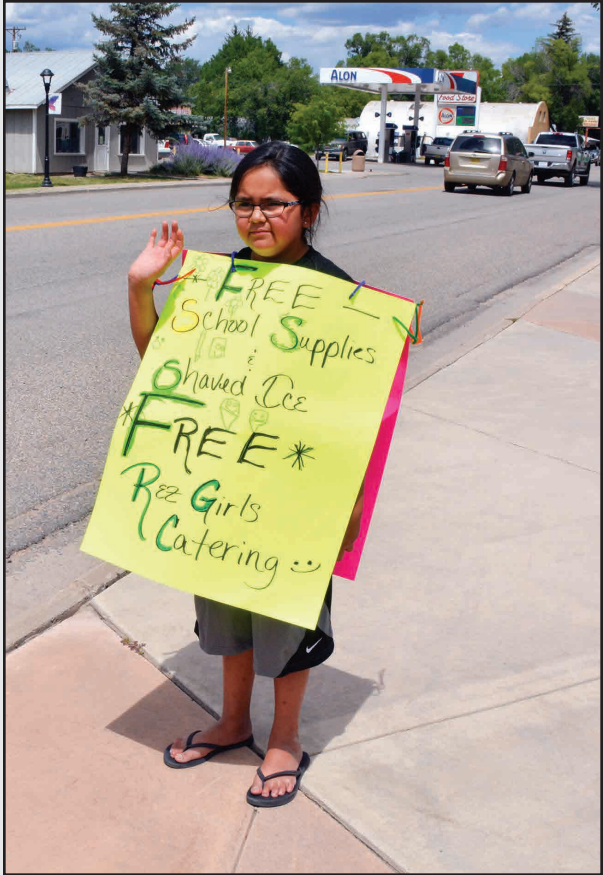 ALON
Food Store
Alon
* FREE —
School Supplies
&
Shaved Ice
*FREE*
Rez Girls
Catering :)